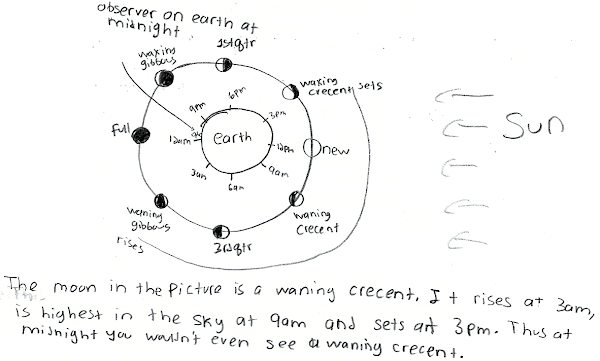 observer on earth at
midnight
1st qtr
waxing
gibbous
waxing
crecent
sets
9pm
6pm
3pm
full
12am
earth
12pm
new
Sun
3am
6am
9am
waning
gibbous
waning
crecent
rises
3rd qtr
The moon in the picture is a waning crecent. It rises at 3am,
is highest in the sky at 9am and sets at 3pm. Thus at
midnight you wouldn't even see a waning crecent.